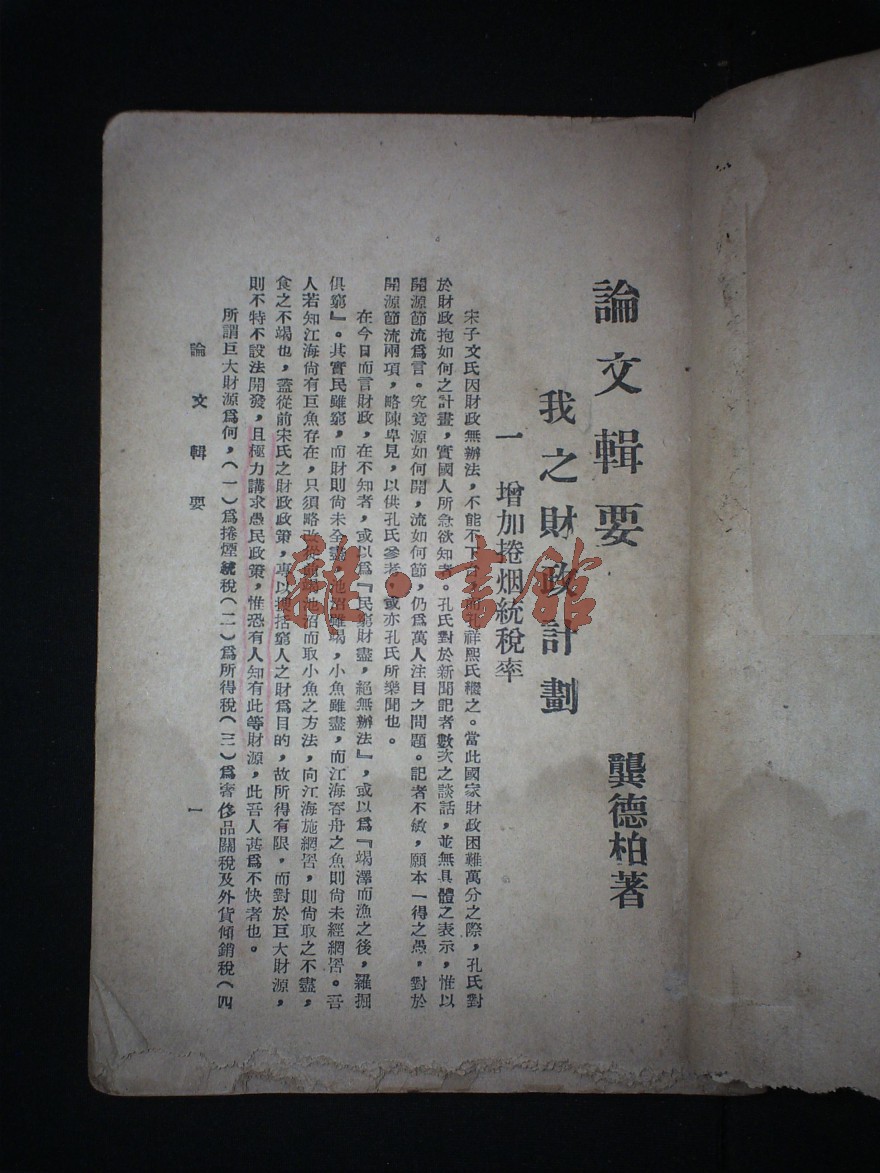 論文輯要
龔德柏著
我之財政計劃
一 增加捲烟統稅率
宋子文氏因財政無辦法，不能不下，而孔祥熙氏繼之。當此國家財政困難萬分之際，孔氏對
於財政抱如何之計畫，實國人所急欲知者。孔氏對於新聞記者數次之談話，並無具體之表示，惟以
開源節流爲言。究竟源如何開，流如何節，仍爲萬人注目之問題。記者不敏，願本一得之愚，對於
開源節流兩項，略陳卑見，以供孔氏參考，或亦孔氏所樂聞也。
在今日而言財政，在不知者，或以爲『民窮財盡，絕無辦法』，或以爲『竭澤而漁之後，羅掘
俱窮』。其實民雖窮，而財則尙未全盡，池沼雖竭，小魚雖盡，而江海吞舟之魚則尙未經網罟。吾
人若知江海尙有巨魚存在，只須略改從前竭池沼而取小魚之方法，向江海施網罟，則尙取之不盡，
食之不竭也，蓋從前宋氏之財政政策，專以搜括窮人之財爲目的，故所得有限，而對於巨大財源，
則不特不設法開發，且極力講求愚民政策，惟恐有人知有此等財源，此吾人甚爲不快者也。
所謂巨大財源爲何，（一）爲捲煙統稅（二）爲所得稅（三）爲奢侈品關稅及外貨傾銷稅（四
論文輯要
一
雜·書館